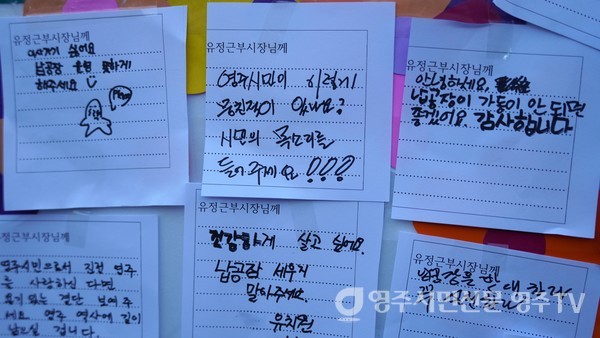 유정근부시장님께
아프기 싫어요
납공장 운영 못하게
해주세요
유정근부시장님께
영주시민이 이렇게
뭉친적이 있나요?
시민의 목소리를
들어주세요!!!
유정근부시장님께
안녕하세요.
납공장이 가동이 안 되면
좋겠어요. 감사합니다
유정근부시장님께
영주시민으로서 진정 영주
를 사랑하신 다면
용기 있는 결단 보여 주
세요. 영주 역사에 길이
남으실 겁니다.
유정근부시장님께
건강하게 살고 싶어요.
납공장 세우지
말아주세요.
유정근부시장님께
납공장을 한
영주시민신문 영주TV